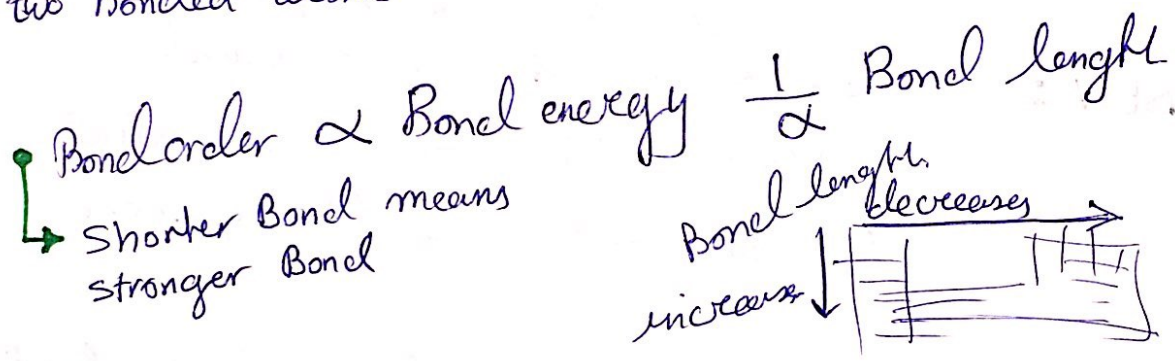 two Bonded
Bond order ∝ Bond energy 1/∝ Bond lenght
Shorter Bond means
stronger Bond
Bond length
decreases
increase